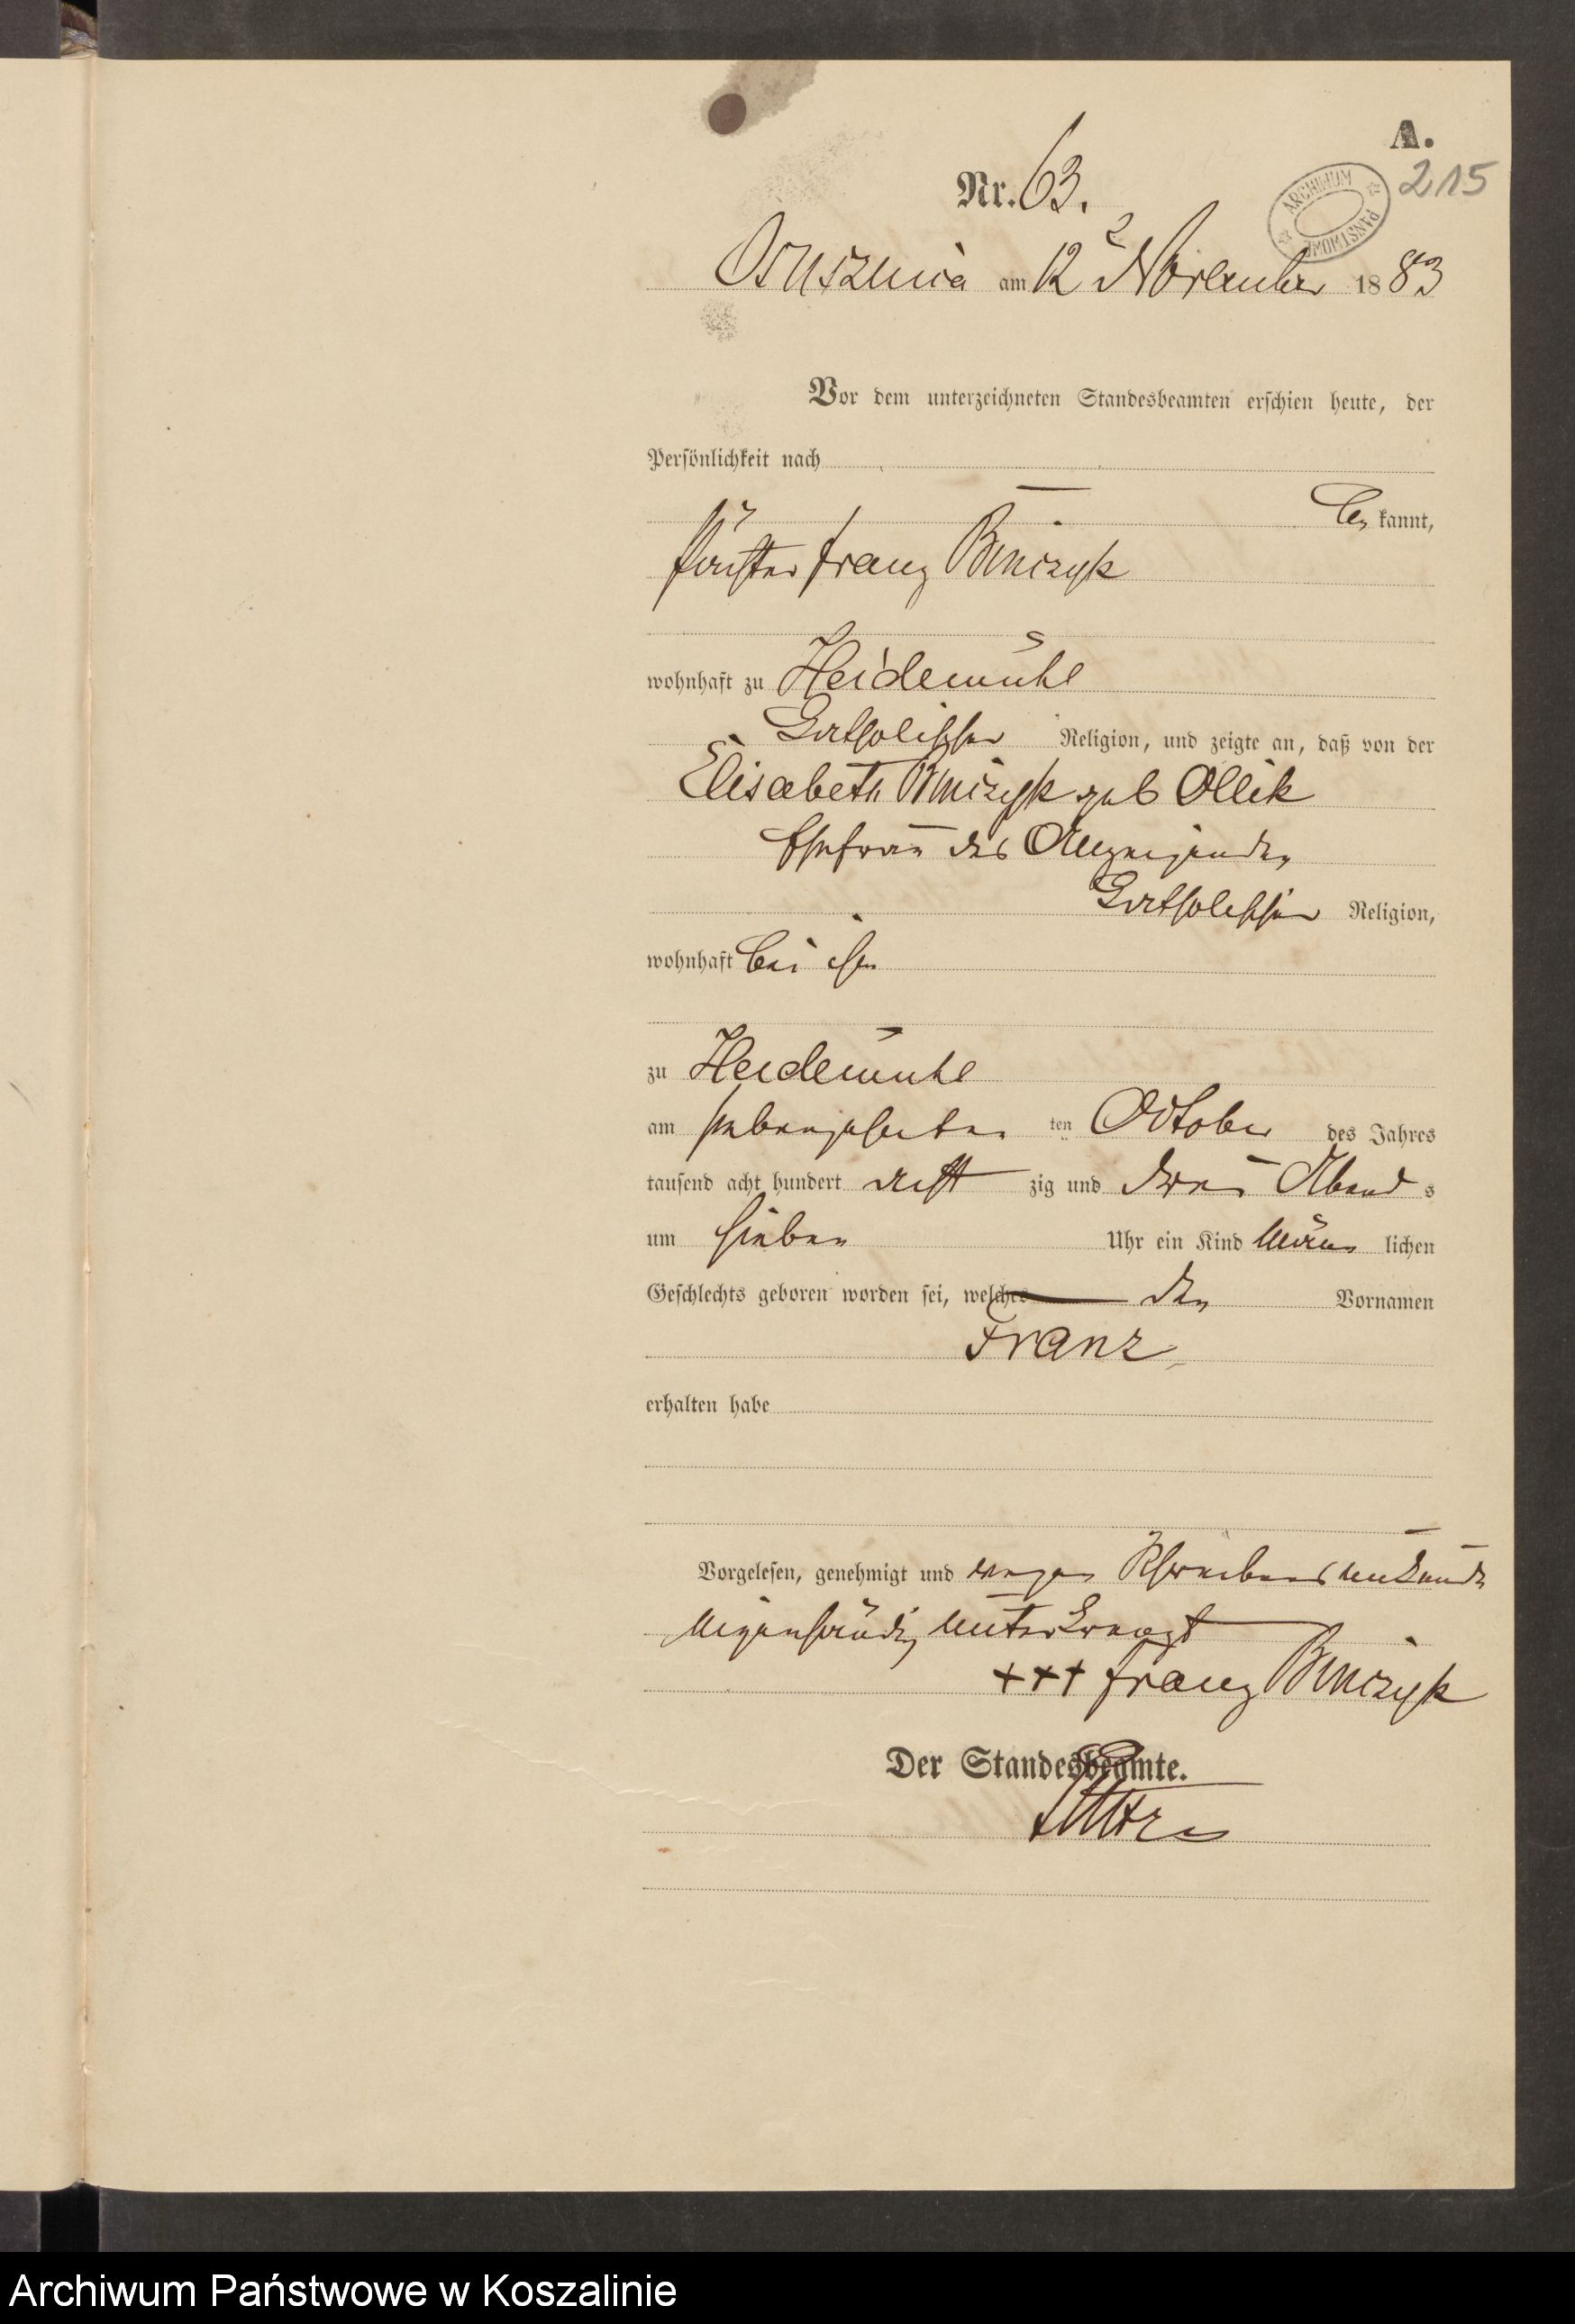 A.
215
ARCHIWUM PAŃSTWOWE
Nr. 63.
Osusznica am 12 November 1883
Vor dem unterzeichneten Standesbeamten erschien heute, der
Persönlichkeit nach
be kannt,
Förster Franz
wohnhaft zu Heidemühl
katholischer Religion, und zeigte an, daß von der
Elisabeth geb Ollik
Ehefrau des Anzeigenden
katholischer Religion,
wohnhaft bei ihm
zu Heidemühl
am siebenzehnten ten October des Jahres
tausend acht hundert acht zig und drei Abend s
um sieben Uhr ein Kind männ lichen
Geschlechts geboren worden sei, welches den Vornamen
Franz
erhalten habe
Vorgelesen, genehmigt und wegen Schreibensunkunde
eigenhändig unterkreuzt
+++ Franz
Der Standesbeamte.
Archiwum Państwowe w Koszalinie